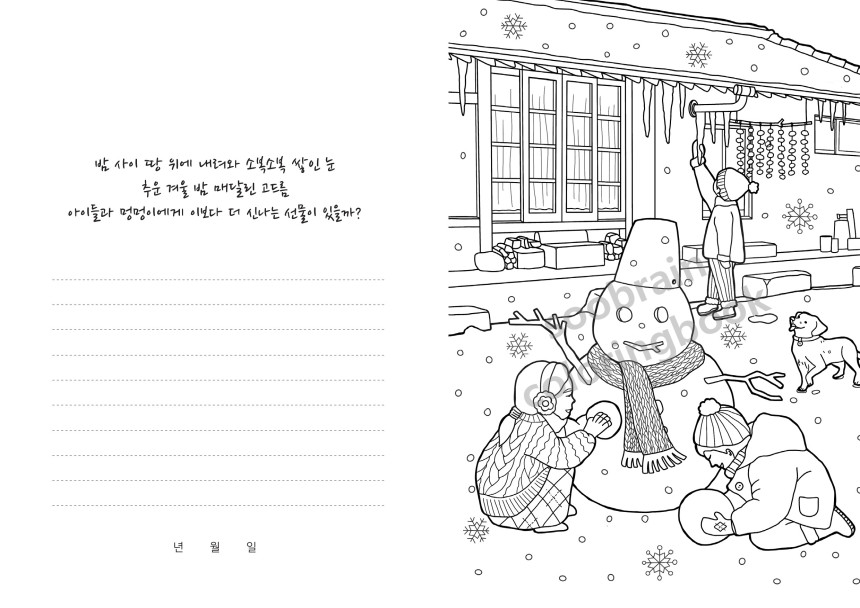 밤 사이 땅 위에 내려와 소복소복 쌓인 눈
추운 겨울 밤 매달린 고드름
아이들과 멍멍이에게 이보다 더 신나는 선물이 있을까?
년 월 일
soobrain
coloringbook